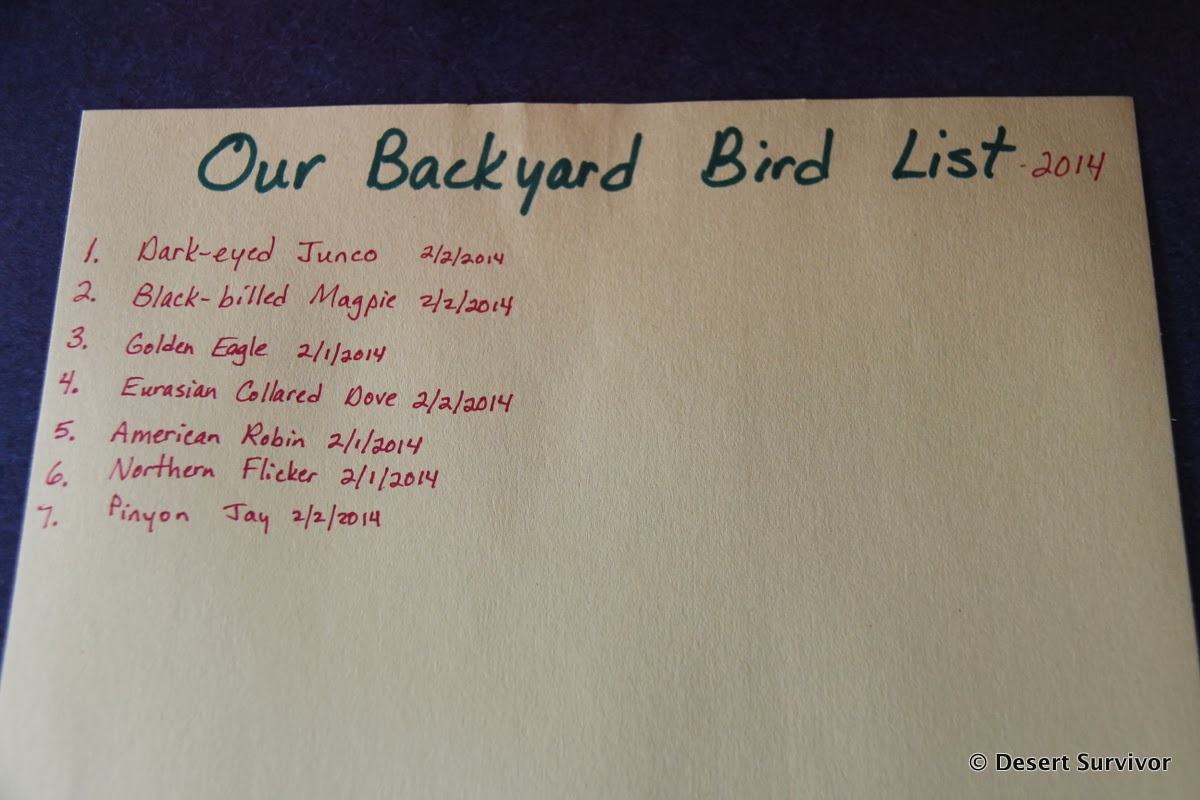 Our Backyard Bird List - 2014
1. Dark-eyed Junco 2/2/2014
2. Black-billed Magpie 2/2/2014
3. Golden Eagle 2/1/2014
4. Eurasian Collared Dove 2/2/2014
5. American Robin 2/1/2014
6. Northern Flicker 2/1/2014
7. Pinyon Jay 2/2/2014
© Desert Survivor